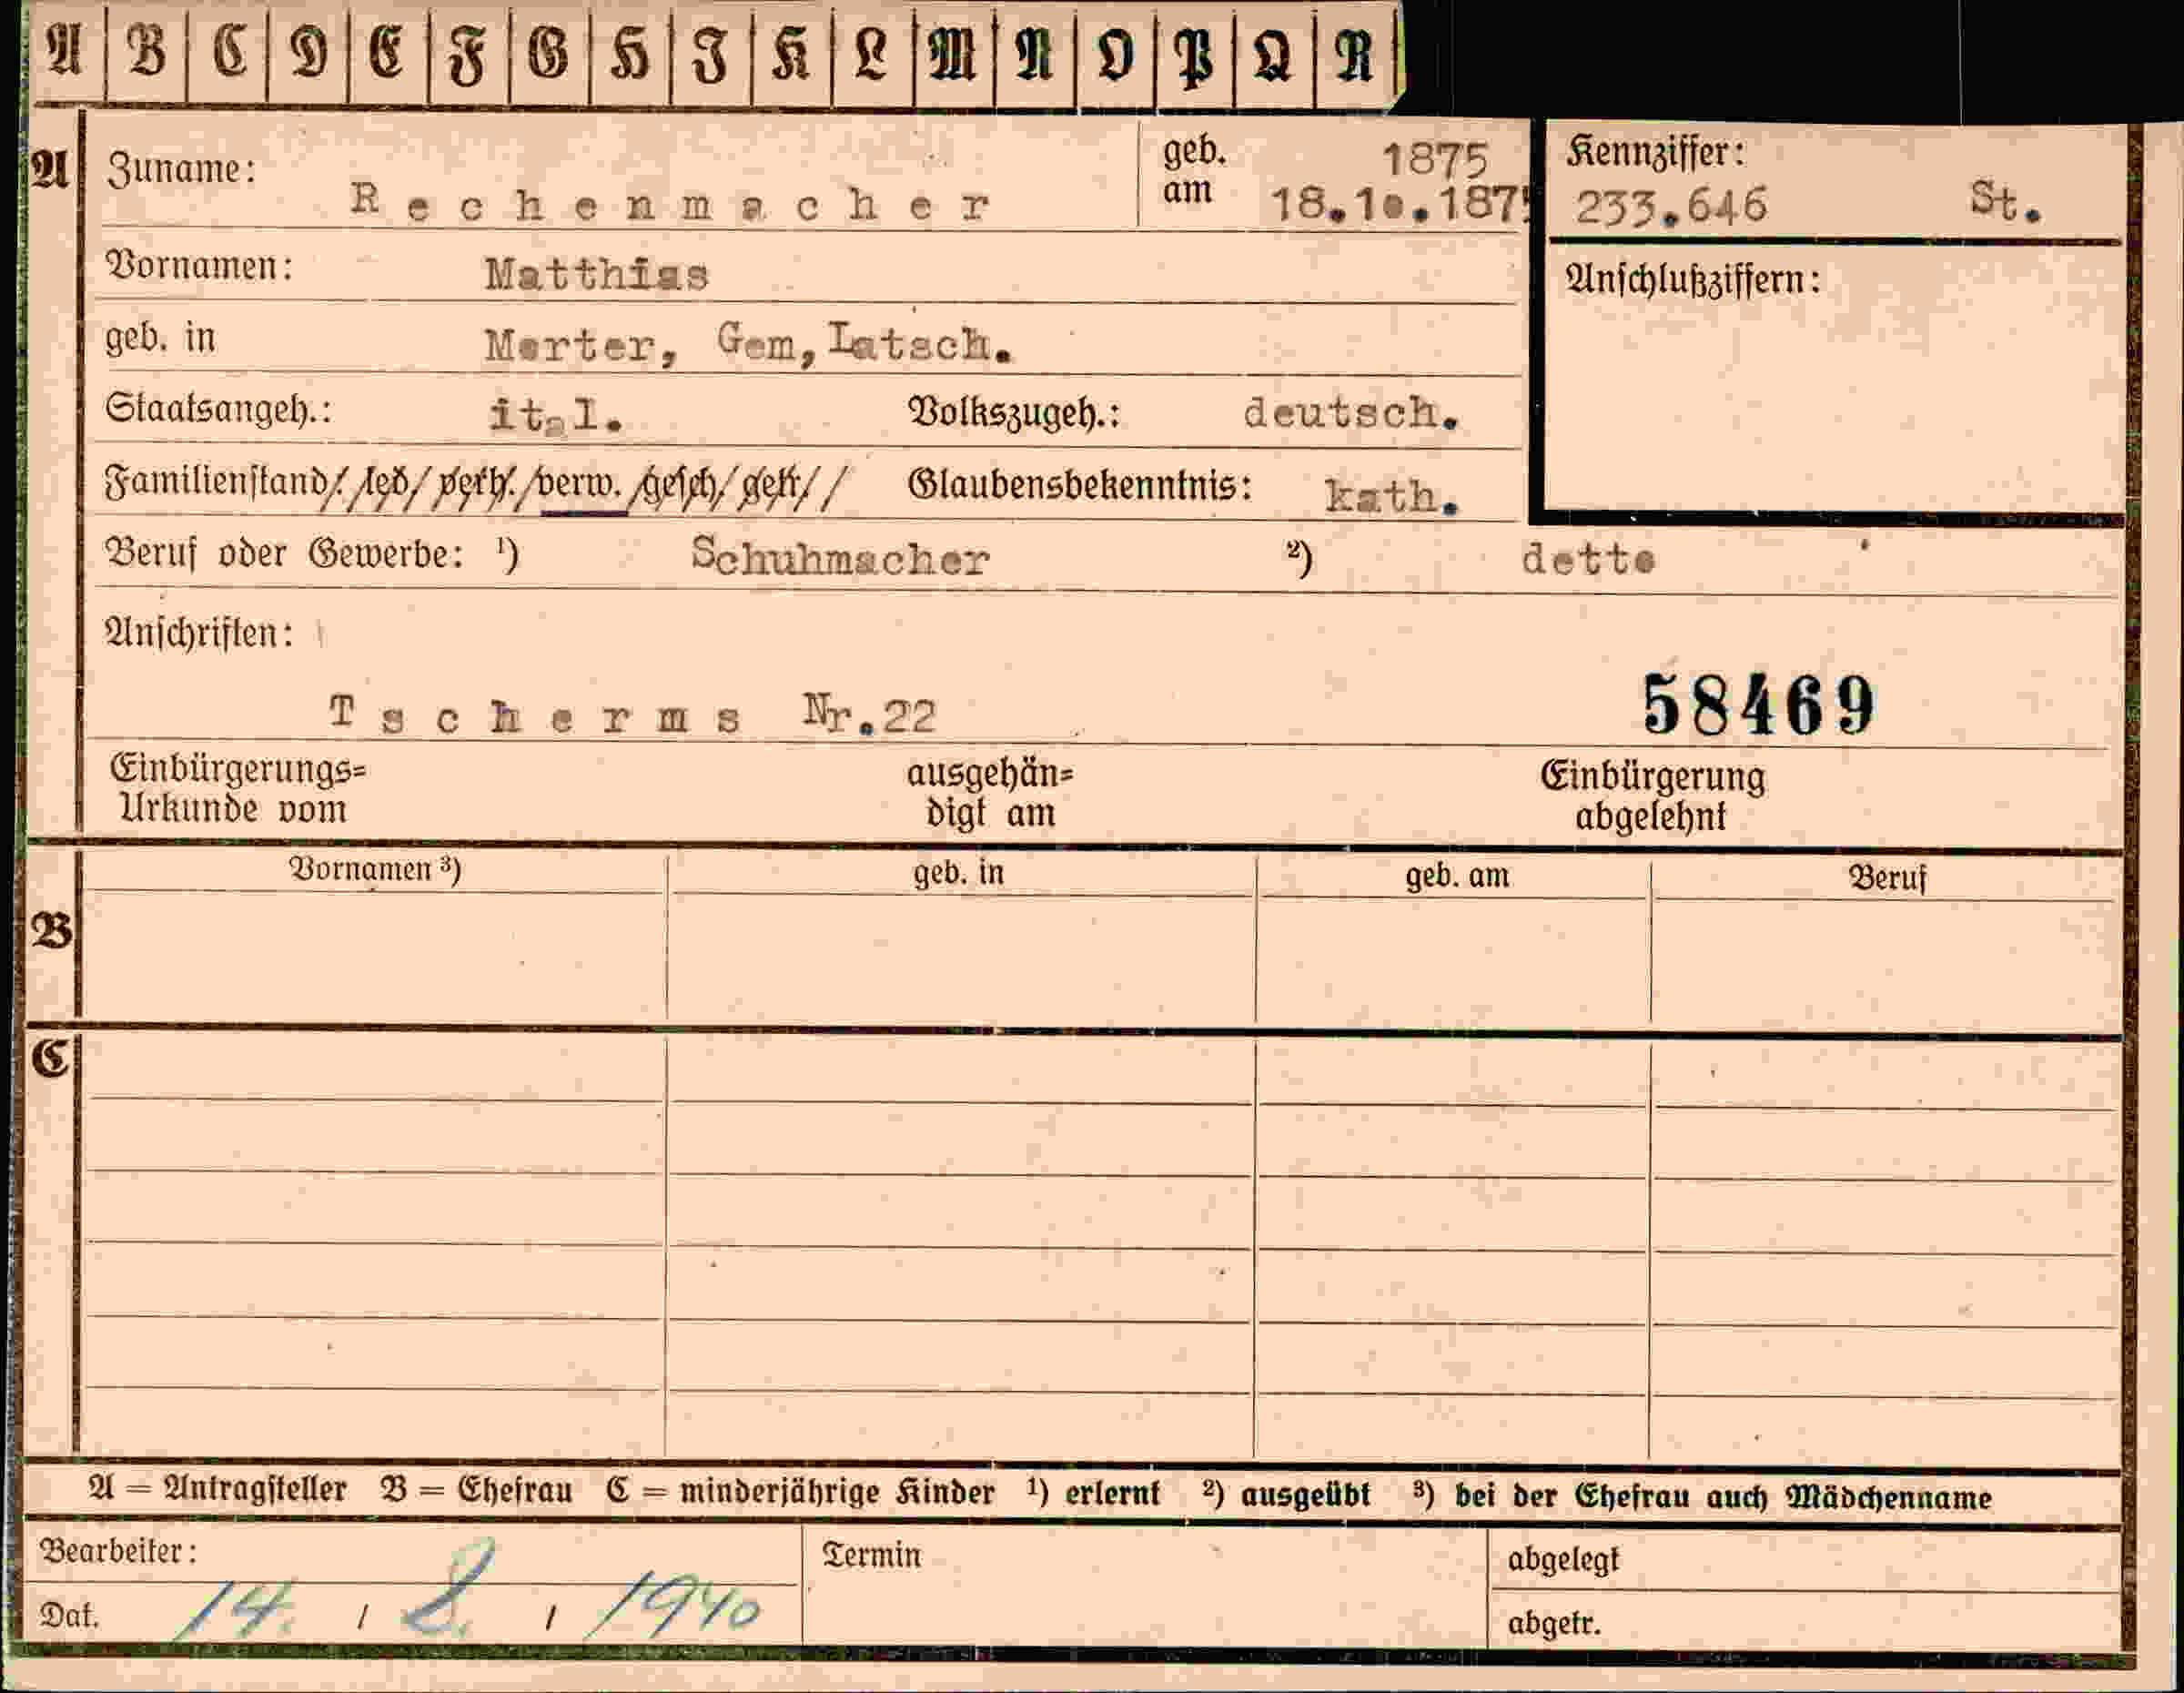 A B C D E F G H I K L M N O P Q R
A Zuname: Rechenmacher geb. am 1875 18.10.1875 Kennziffer: 233.646 St.
Vornamen: Matthias Anschlußziffern:
geb. in Morter, Gem, Latsch.
Staatsangeh.: ital. Volkszugeh.: deutsch.
Familienstand: led. verh. verw. gesch. getr. Glaubensbekenntnis: kath.
Beruf oder Gewerbe: ¹) Schuhmacher ²) detto
Anschriften:
Tscherms Nr.22 58469
Einbürgerungs= ausgehän= Einbürgerung
Urkunde vom digt am abgelehnt
Vornamen ³) geb. in geb. am Beruf
B
C
A = Antragsteller B = Ehefrau C = minderjährige Kinder ¹) erlernt ²) ausgeübt ³) bei der Ehefrau auch Mädchenname
Bearbeiter: Termin abgelegt
Dat. 14. / 2. / 1940 abgetr.